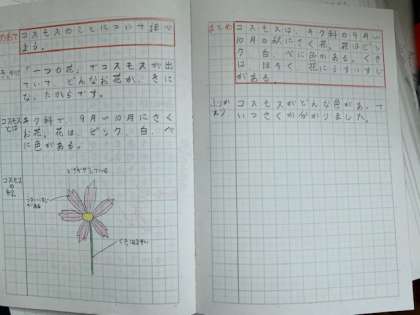 めあて
コスモスのことについて調べ
よう。
「一つの花」でコスモスが出
ていて、どんなお花か、きに
なったからです。
コスモス
とは
キク科で、9月〜10月にさく
お花。花は、ピンク、白、べ
に色がある。
コスモス
の
まとめ
コスモスは、キク科の9月〜
10月の秋にさく花。花はピン
ク、白、べに色がある。くき
は、ほそく、花に
がある。
ふりかえり
コスモスがどんな色があって
いつさくか分かりました。